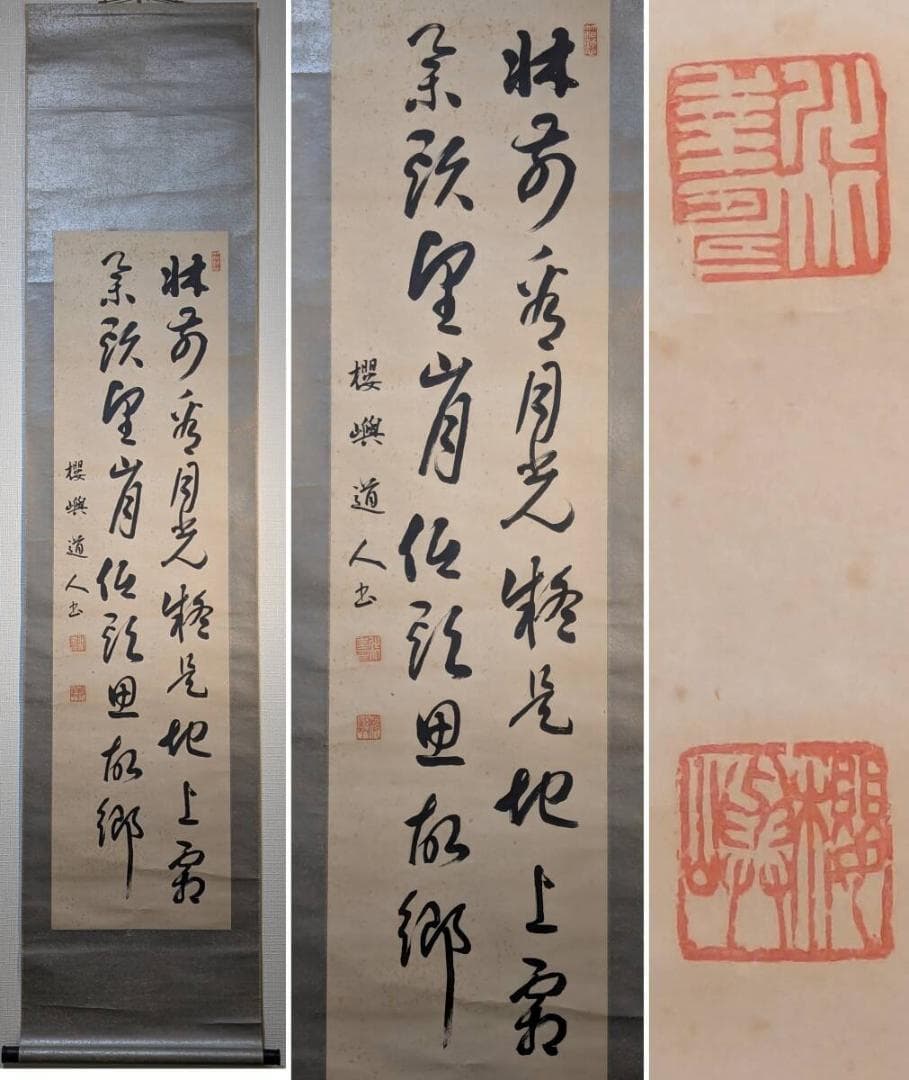 牀前看月光疑是地上霜
舉頭望山月低頭思故鄉
櫻嶼道人書
牀前看月光疑是地上霜
舉頭望山月低頭思故鄉
櫻嶼道人書